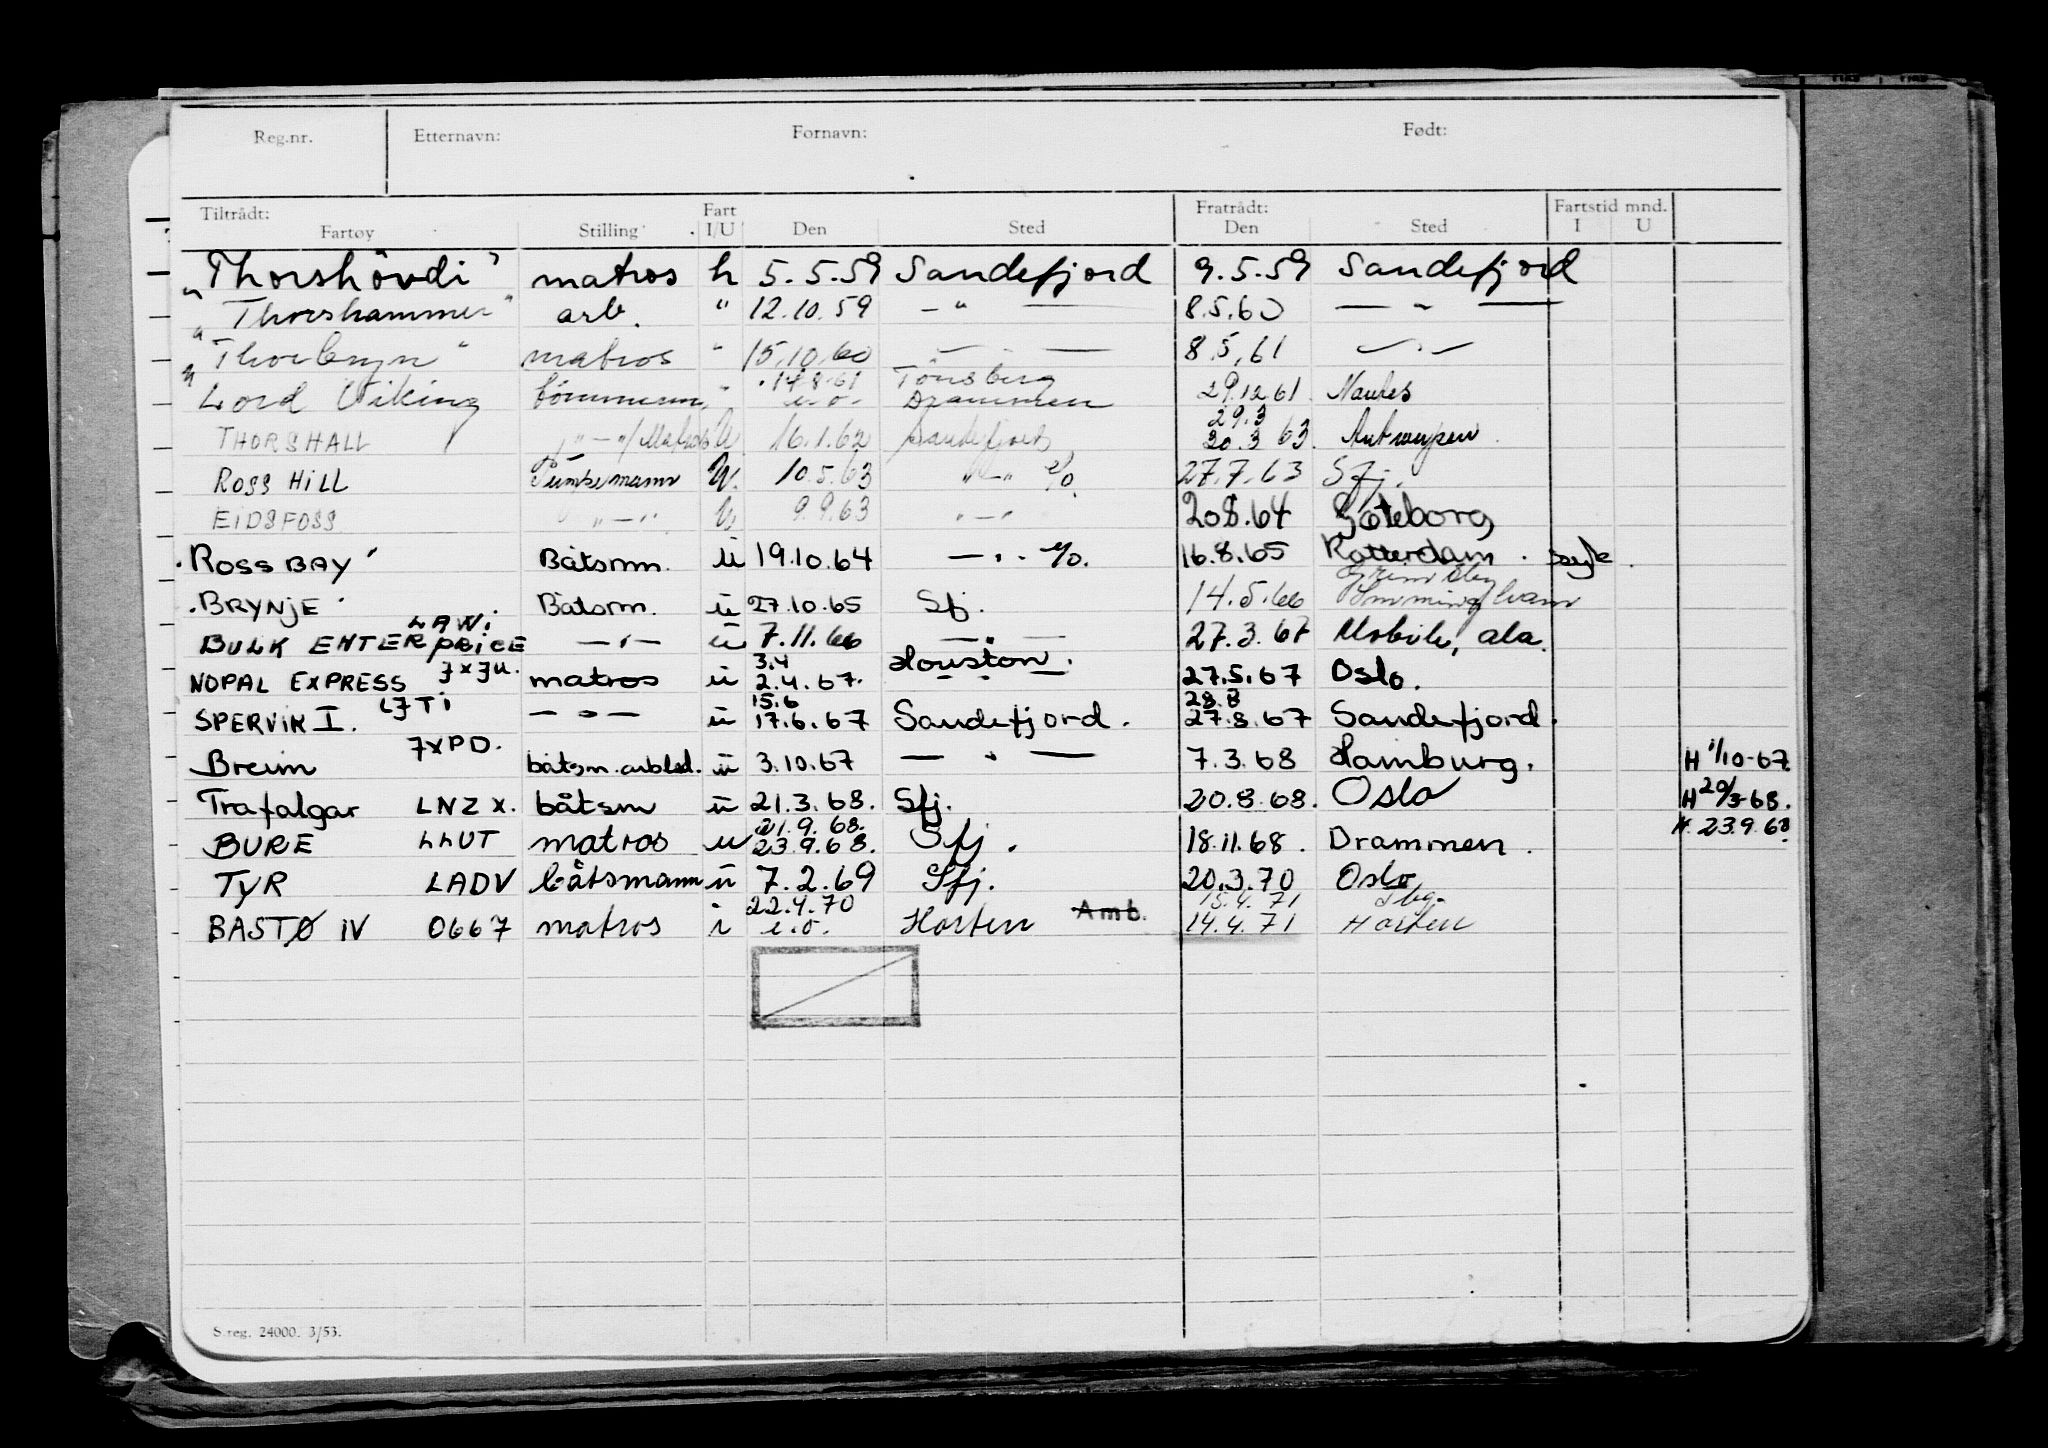 Reg.nr. Etternavn: Fornavn: Født:
Tiltrådt: Fart Fratrådt: Fartstid mnd.
Fartøy Stilling I/U Den Sted Den Sted I U
"Thorshövdi" matros h 5.5.59 Sandefjord 9.5.59 Sandefjord
"Thorshammer" arb. " 12.10.59 — " — 8.5.60 — " —
"Thorbryn" matros " 15.10.60 — " — 8.5.61 — " —
Lord Viking tömmerm. " 14.8.61 Tönsberg 29.12.61 Nantes
e.o. Drammen
THORSHALL — " — / Matros U 16.1.62 Sandefjord 29.3 30.3 63. Antwerpen.
ROSS HILL Tömmermann U. 10.5.63 " — " e/o. 27.7.63 Sfj.
EIDSFOSS " — " U. 9.9.63 " — " 20.8.64 Göteborg
"ROSS BAY" Båtsmn. u 19.10.64 — " — e/o. 16.8.65 Rotterdam. syk.
"BRYNJE" Båtsm. u 27.10.65 Sfj. 14.5.66 Grimsby
Immingham
LAWI
BULK ENTERPRICE — " — u 7.11.66 — " — 27.3.67 Mobile, ala.
NOPAL EXPRESS JXJU. matros u 3.4 2.4.67. Houston. 27.5.67 Oslo.
SPERVIK I. LJTI — " — u 15.6 17.6.67 Sandefjord. 28.8 27.8.67 Sandefjord.
Breim JXPD. båtsm. arbled. u 3.10.67 — " — 7.3.68 Hamburg. H 1/10-67.
Trafalgar LNZX. båtsm u 21.3.68. Sfj. 20.8.68. Oslo H 20/3-68.
BURE LLUT matros u 21.9.68. 23.9.68. Sfj. 18.11.68. Drammen. H. 23.9.68.
TYR LADV båtsmann u 7.2.69 Sfj. 20.3.70 Oslo
BASTØ IV 0667 matros i 22.4.70 e.o. Horten Amb. 15.4.71 Tbg.
14.4.71 Horten
S.reg. 24000. 3/53.